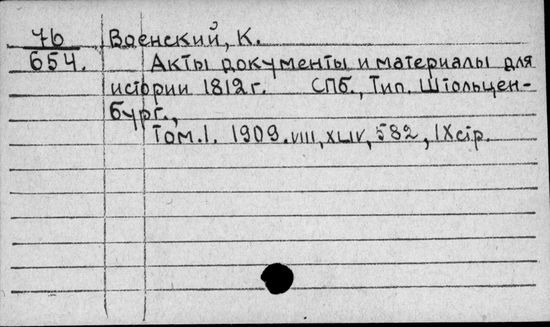 76 Военский, К.
654. Акты документы и материалы для
истории 1812 г. СПб., Тип. Штольцен-
бург.,
Том.I. 1909. VIII, XLIV, 582, IX стр.